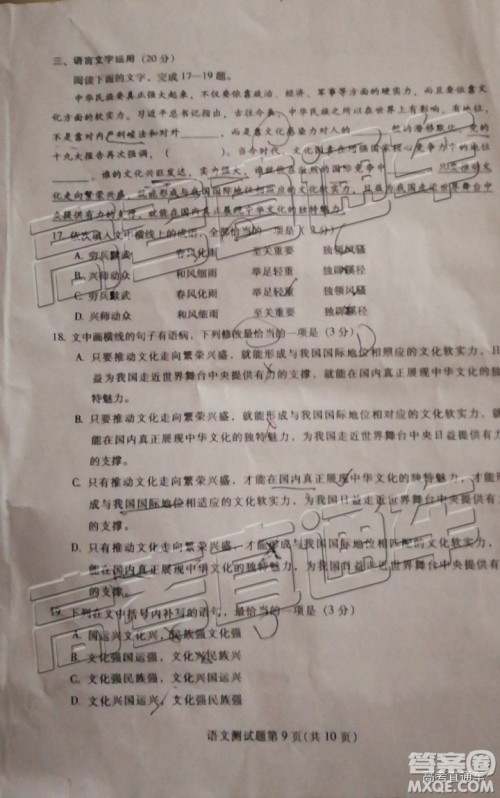 三、语言文字运用（20分）
阅读下面的文字，完成17—19题。
中华民族要真正强大起来，不仅要依靠政治、经济、军事等方面的硬实力，而且要依靠文
化方面的软实力。习近平总书记指出，古往今来，中华民族之所以在世界上有影响、有地位，
不是靠对内穷兵黩武和对外
而是靠文化感染力对人的
般的潜移默化。党的
十九大报告再次强调，（ ）。当今时代，文化因素
，谁的文化兴旺发达，实力强大，谁就能在激烈的国际竞争中
17. 依次填入文中横线上的成语，全部恰当的一项是（3分）
A. 穷兵黩武 春风化雨 至关重要 独领风骚
B. 兴师动众 和风细雨 举足轻重 独辟蹊径
C. 穷兵黩武 春风化雨 举足轻重 独领风骚
D. 兴师动众 和风细雨 至关重要 独辟蹊径
18. 文中画横线的句子有语病，下列修改最恰当的一项是（3分）
A. 只要推动文化走向繁荣兴盛，就能形成与我国国际地位相照应的文化软实力，日
益为我国走近世界舞台中央提供有力的支撑，就能在国内真正展现中华文化的独
特魅力。
B. 只要推动文化走向繁荣兴盛，就能形成与我国国际地位相对应的文化软实力，就
能在国内真正展现中华文化的独特魅力，为我国走近世界舞台中央日益提供有力
的支撑。
C. 只有推动文化走向繁荣兴盛，才能在国内真正展现中华文化的独特魅力，才能形
成与我国国际地位相适应的文化软实力，为我国日益走近世界舞台中央提供有力
的支撑。
D. 只有推动文化走向繁荣兴盛，才能形成与我国国际地位相匹配的文化软实力，为
我国日益走近世界舞台中央提供有力的支撑，才能在国内真正展现中华文化的独
特魅力。
19. 下列在文中括号内补写的语句，最恰当的一项是（3分）
A. 国运兴文化兴，民族强文化强
B. 文化强国运强，文化兴民族兴
C. 国运兴文化兴，文化强民族强
D. 文化兴国运兴，文化强民族强
语文测试题第9页(共10页)
高考直通车
高考直通车
答案圈
MXQE.COM